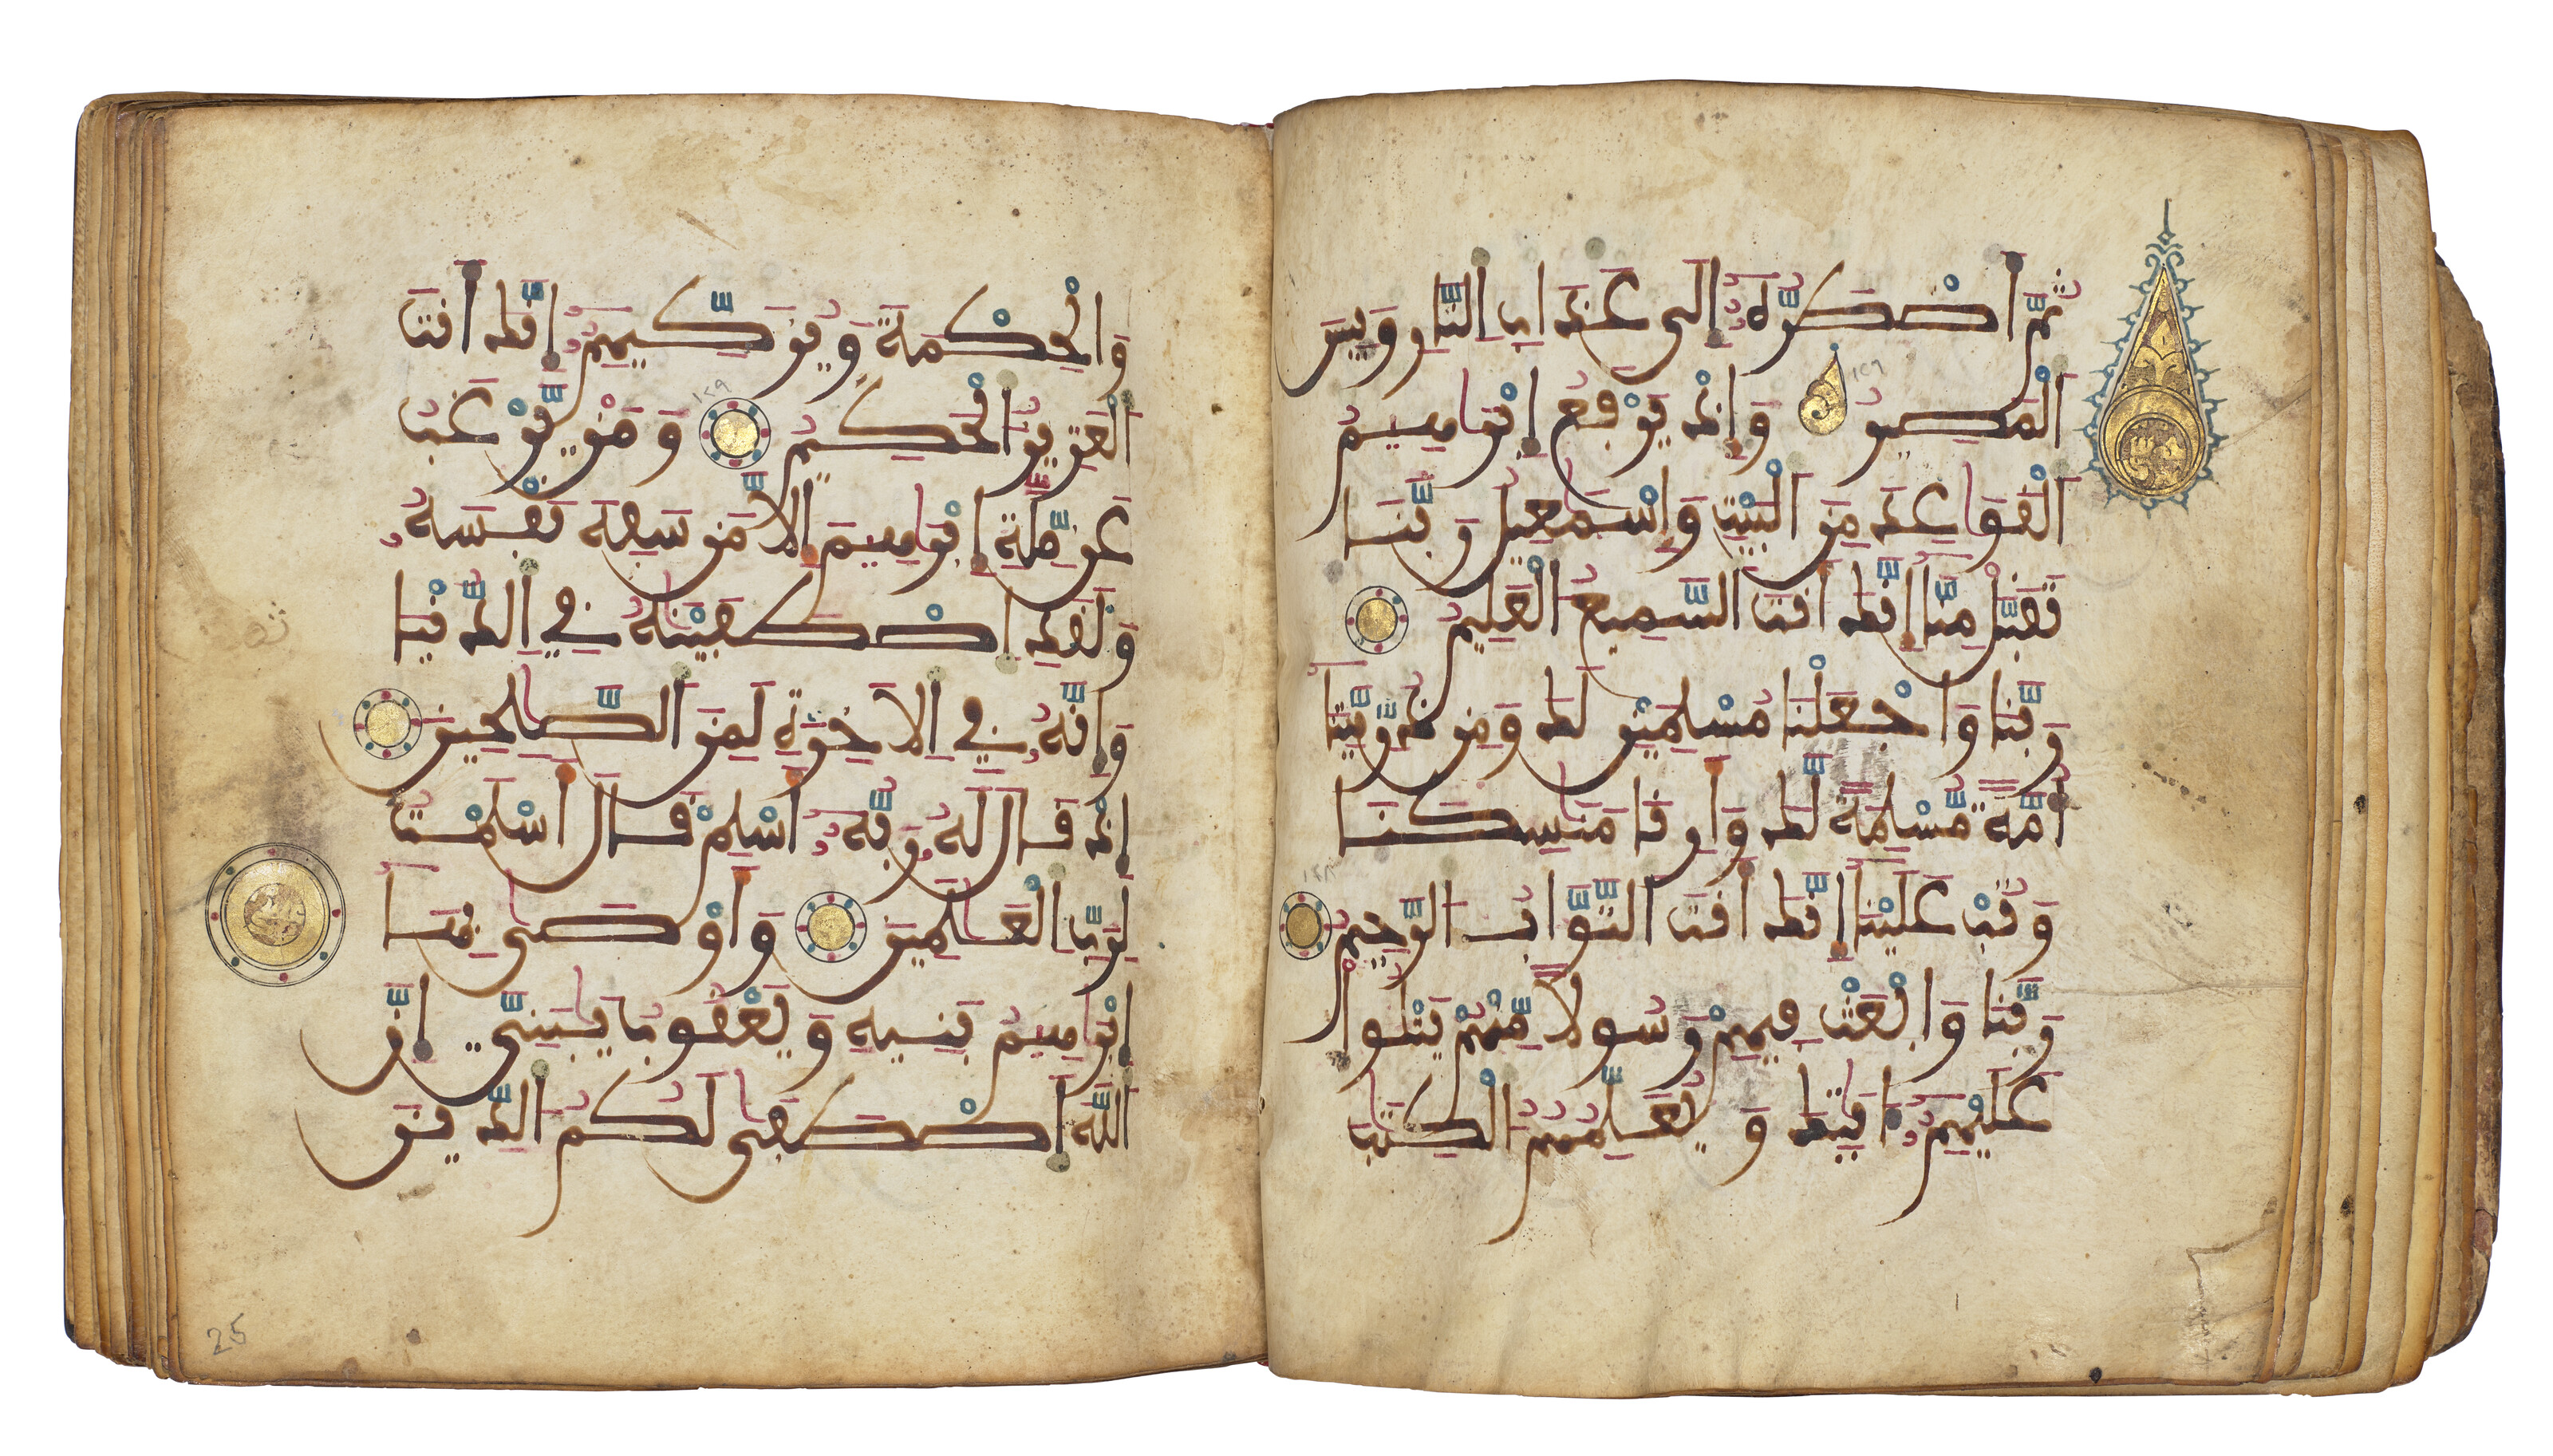 ثُمَّ أَضْطَرُّهُ إِلَىٰ عَذَابِ النَّارِ وَبِيسَ
الْمَصِيرُ ١٢٦ وَإِذْ يَرْفَعُ إِبْرَٰهِيمُ
الْقَوَاعِدَ مِنَ الْبَيْتِ وَإِسْمَٰعِيلُ رَبَّنَا
تَقَبَّلْ مِنَّا إِنَّكَ أَنتَ السَّمِيعُ الْعَلِيمُ
رَبَّنَا وَاجْعَلْنَا مُسْلِمَيْنِ لَكَ وَمِن ذُرِّيَّتِنَا
أُمَّةً مُّسْلِمَةً لَّكَ وَأَرِنَا مَنَاسِكَنَا
وَتُبْ عَلَيْنَا إِنَّكَ أَنتَ التَّوَّابُ الرَّحِيمُ ١٢٨
رَبَّنَا وَابْعَثْ فِيهِمْ رَسُولًا مِّنْهُمْ يَتْلُوا
عَلَيْهِمُ ءَايَٰتِكَ وَيُعَلِّمُهُمُ الْكِتَٰبَ
وَالْحِكْمَةَ وَيُزَكِّيهِمُ إِنَّكَ أَنتَ
الْعَزِيزُ الْحَكِيمُ ١٢٩ وَمَنْ يَّرْغَبُ
عَن مِّلَّةِ إِبْرَٰهِيمَ إِلَّا مَن سَفِهَ نَفْسَهُ
وَلَقَدِ اصْطَفَيْنَٰهُ فِي الدُّنْيَا
وَإِنَّهُ فِي الْأَخِرَةِ لَمِنَ الصَّٰلِحِينَ
إِذْ قَالَ لَهُ رَبُّهُ أَسْلِمْ قَالَ أَسْلَمْتُ
لِرَبِّ الْعَٰلَمِينَ وَأَوْصَىٰ بِهَا
إِبْرَٰهِيمُ بَنِيهِ وَيَعْقُوبُ يَٰبَنِيَّ إِنَّ
اللَّهَ اصْطَفَىٰ لَكُمُ الدِّينَ
25